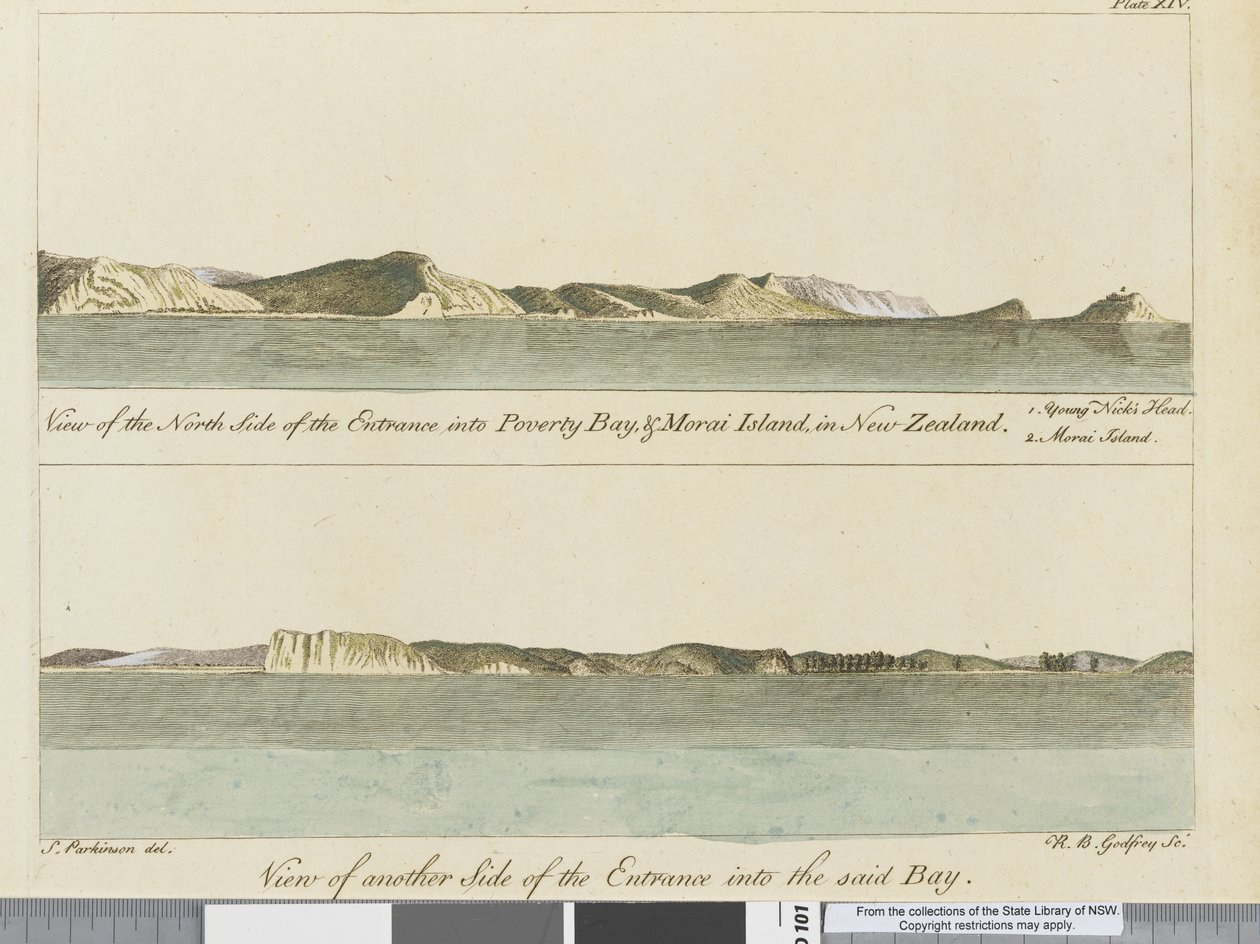 Plate XIV.
2
1
View of the North Side of the Entrance into Poverty Bay, & Morai Island, in New Zealand.
1. Young Nick's Head.
2. Morai Island.
S. Parkinson del.
R. B. Godfrey Sc.
View of another Side of the Entrance into the said Bay.
101
From the collections of the State Library of NSW.
Copyright restrictions may apply.